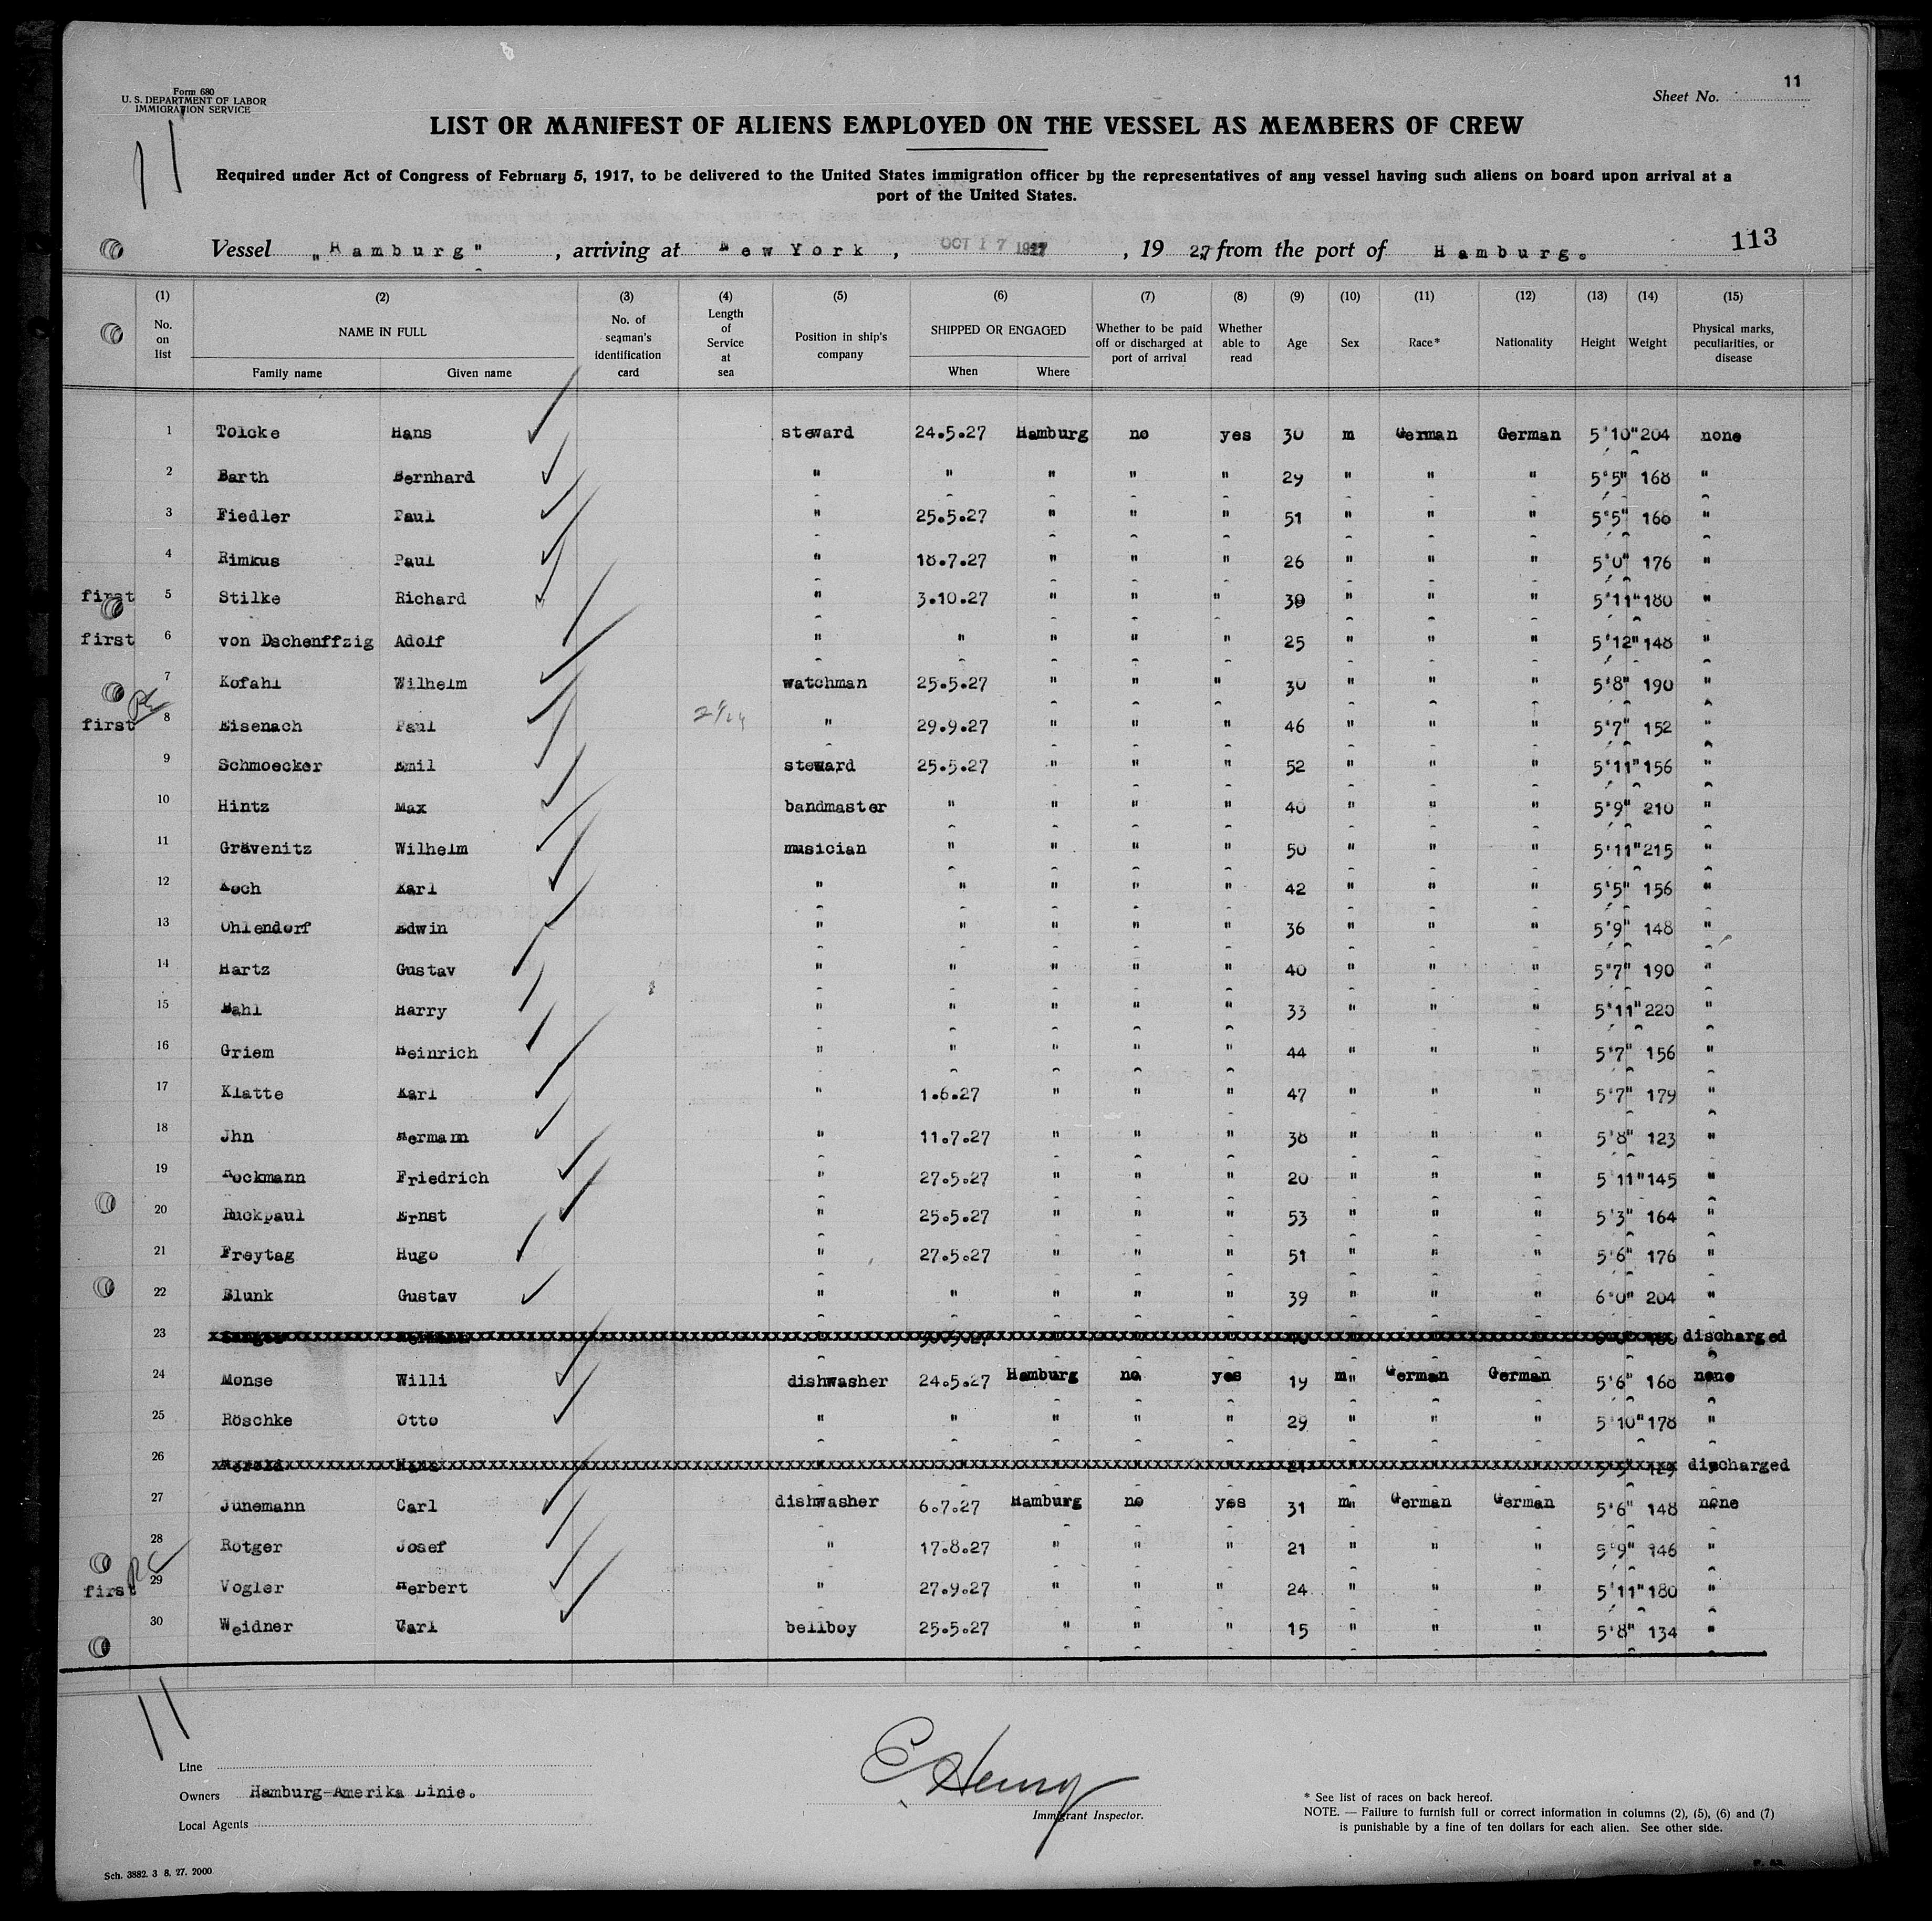 Form 680
U. S. DEPARTMENT OF LABOR
IMMIGRATION SERVICE
Sheet No. 11
11
LIST OR MANIFEST OF ALIENS EMPLOYED ON THE VESSEL AS MEMBERS OF CREW
Required under Act of Congress of February 5, 1917, to be delivered to the United States immigration officer by the representatives of any vessel having such aliens on board upon arrival at a
port of the United States.
113
Vessel "Hamburg" , arriving at New York , OCT 17 1927 , 19 27 from the port of Hamburg.
(1) (2) (3) (4) (5) (6) (7) (8) (9) (10) (11) (12) (13) (14) (15)
No. on list NAME IN FULL Family name Given name No. of seaman's identification card Length of Service at sea Position in ship's company SHIPPED OR ENGAGED When Where Whether to be paid off or discharged at port of arrival Whether able to read Age Sex Race* Nationality Height Weight Physical marks, peculiarities, or disease
1 Tolcke Hans steward 24.5.27 Hamburg no yes 30 m German German 5'10" 204 none
2 Barth Bernhard " " " " " 29 " " " 5'5" 168 "
3 Fiedler Paul " 25.5.27 " " " 51 " " " 5'5" 168 "
4 Rimkus Paul " 18.7.27 " " " 26 " " " 5'0" 176 "
first 5 Stilke Richard " 3.10.27 " " " 39 " " " 5'11" 180 "
first 6 von Dschenffzig Adolf " " " " " 25 " " " 5'12" 148 "
7 Kofahl Wilhelm watchman 25.5.27 " " " 30 " " " 5'8" 190 "
first 8 Eisenach Paul " 29.9.27 " " " 46 " " " 5'7" 152 "
9 Schmoecker Emil steward 25.5.27 " " " 52 " " " 5'11" 156 "
10 Hintz Max bandmaster " " " " 40 " " " 5'9" 210 "
11 Grävenitz Wilhelm musician " " " " 50 " " " 5'11" 215 "
12 Koch Karl " " " " " 42 " " " 5'5" 156 "
13 Ohlendorf Edwin " " " " " 36 " " " 5'9" 148 "
14 Hartz Gustav " " " " " 40 " " " 5'7" 190 "
15 Harry " " " " " 33 " " " 5'11" 220 "
16 Griem Heinrich " " " " " 44 " " " 5'7" 156 "
17 Klatte Karl " 1.6.27 " " " 47 " " " 5'7" 179 "
18 Jhn Hermann " 11.7.27 " " " 38 " " " 5'8" 123 "
19 Friedrich " 27.5.27 " " " 20 " " " 5'11" 145 "
20 Ruckpaul Ernst " 25.5.27 " " " 53 " " " 5'3" 164 "
21 Freytag Hugo " 27.5.27 " " " 51 " " " 5'6" 176 "
22 Blunk Gustav " " " " " 39 " " " 6'0" 204 "
23 discharged
24 Monse Willi dishwasher 24.5.27 Hamburg no yes 19 m German German 5'6" 168 none
25 Röschke Otto " " " " " 29 " " " 5'10" 178 "
26 discharged
27 Junemann Carl dishwasher 6.7.27 Hamburg no yes 31 m German German 5'6" 148 none
28 Rotger Josef " 17.8.27 " " " 21 " " " 5'9" 146 "
first 29 Vogler Herbert " 27.9.27 " " " 24 " " " 5'11" 180 "
30 Weidner Carl bellboy 25.5.27 " " " 15 " " " 5'8" 134 "
11
Line
Owners Hamburg-Amerika Linie.
Local Agents
E. Henry
Immigrant Inspector.
* See list of races on back hereof.
NOTE. — Failure to furnish full or correct information in columns (2), (5), (6) and (7)
is punishable by a fine of ten dollars for each alien. See other side.
Sch. 3882. 3 8. 27. 2000